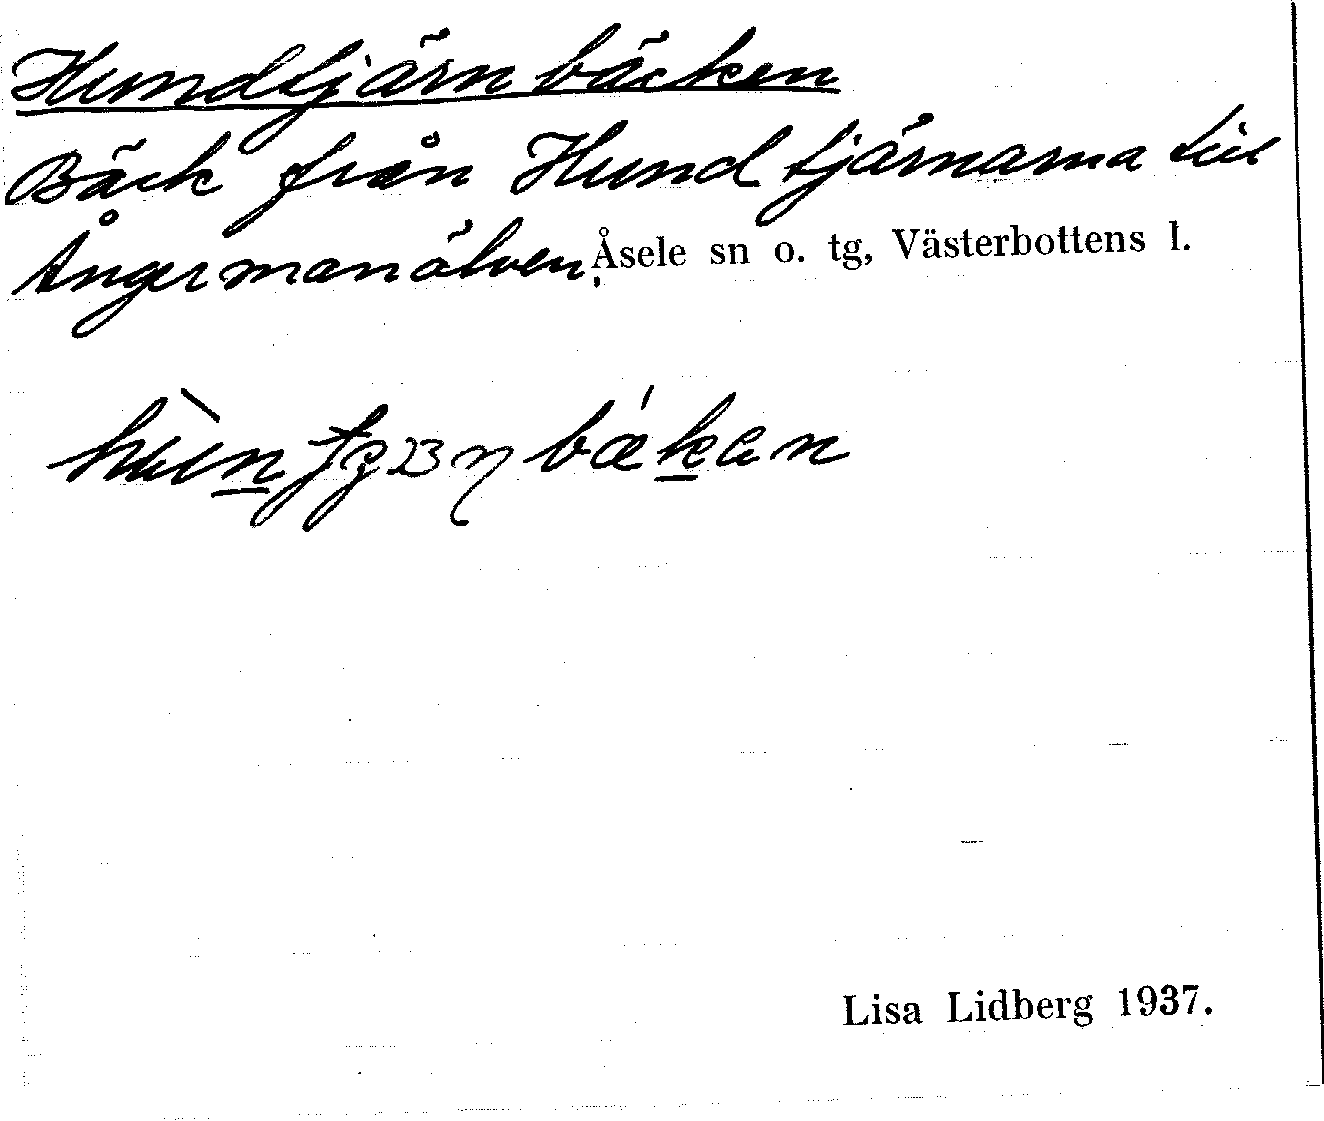 Hundtjärnbäcken
Bäck från Hundtjärnarna till
Ångermanälven, Åsele sn o. tg, Västerbottens l.
Lisa Lidberg 1937.